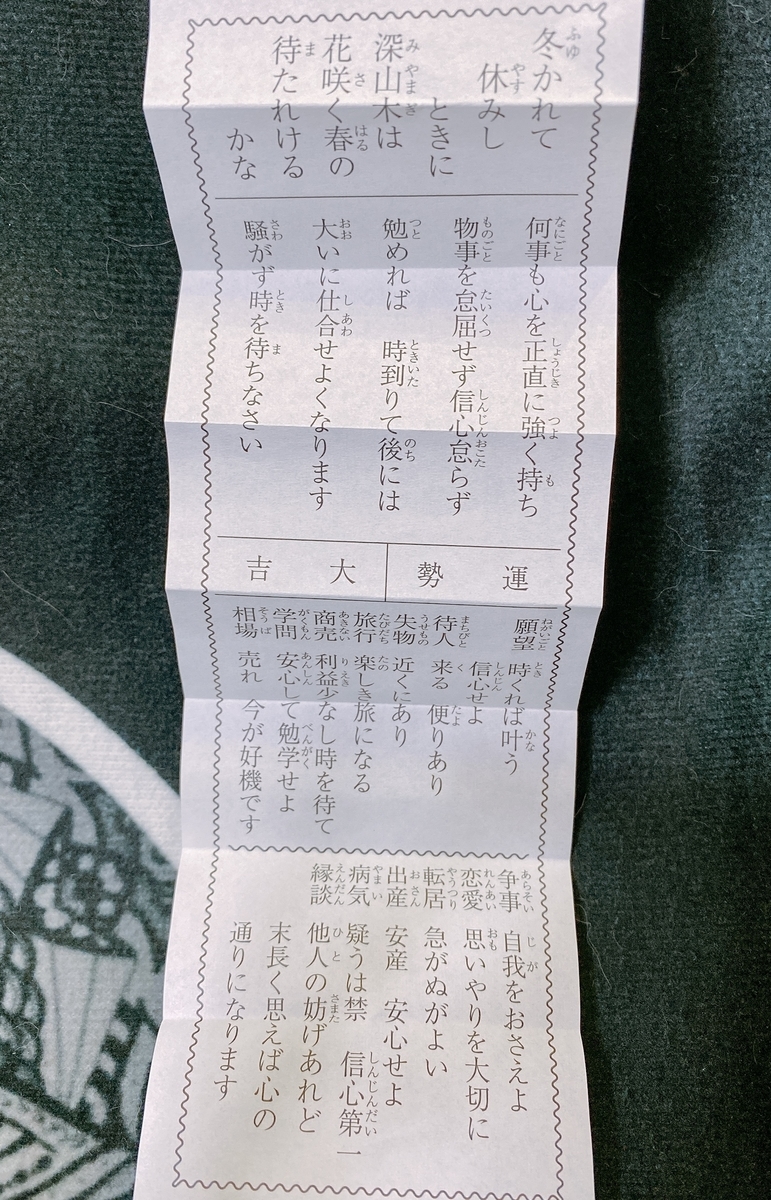 冬かれて
休みし
ときに
深山木は
花咲く春の
待たれける
かな
何事も心を正直に強く持ち
物事を怠屈せず信心怠らず
勉めれば 時到りて後には
大いに仕合せよくなります
騒がず時を待ちなさい
運勢 大吉
願望 時くれば叶う
信心せよ
待人 来る 便りあり
失物 近くにあり
旅行 楽しき旅になる
商売 利益少なし時を待て
学問 安心して勉学せよ
相場 売れ 今が好機です
争事 自我をおさえよ
恋愛 思いやりを大切に
転居 急がぬがよい
出産 安産 安心せよ
病気 疑うは禁 信心第一
縁談 他人の妨げあれど
末長く思えば心の
通りになります